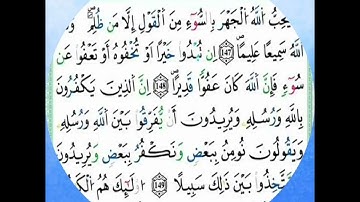 يُحِبُّ ٱللَّهُ ٱلْجَهْرَ بِٱلسُّوٓءِ مِنَ ٱلْقَوْلِ إِلَّا مَن ظُلِمَ ۚ وَ
ٱللَّهُ سَمِيعًا عَلِيمًا ١٤٧ إِن تُبْدُوا۟ خَيْرًا أَوْ تُخْفُوهُ أَوْ تَعْفُوا۟ عَن
سُوٓءٍ فَإِنَّ ٱللَّهَ كَانَ عَفُوًّا قَدِيرًا ١٤٨ إِنَّ ٱلَّذِينَ يَكْفُرُونَ
بِٱللَّهِ وَرُسُلِهِۦ وَيُرِيدُونَ أَن يُفَرِّقُوا۟ بَيْنَ ٱللَّهِ وَرُسُلِهِۦ
وَيَقُولُونَ نُؤْمِنُ بِبَعْضٍ وَنَكْفُرُ بِبَعْضٍ وَيُرِيدُونَ
يَتَّخِذُوا۟ بَيْنَ ذَٰلِكَ سَبِيلًا ١٤٩ أُو۟لَٰٓئِكَ هُمُ